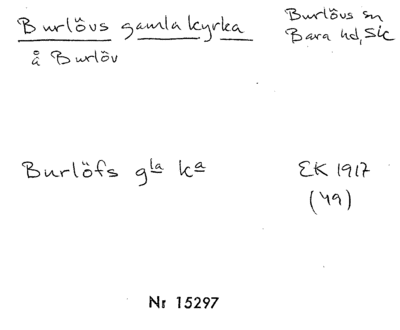 Burlövs gamla kyrka
å Burlöv
Burlövs sn
Bara hd, Sk
Burlöfs gla ka
EK 1917
(49)
Nr 15297